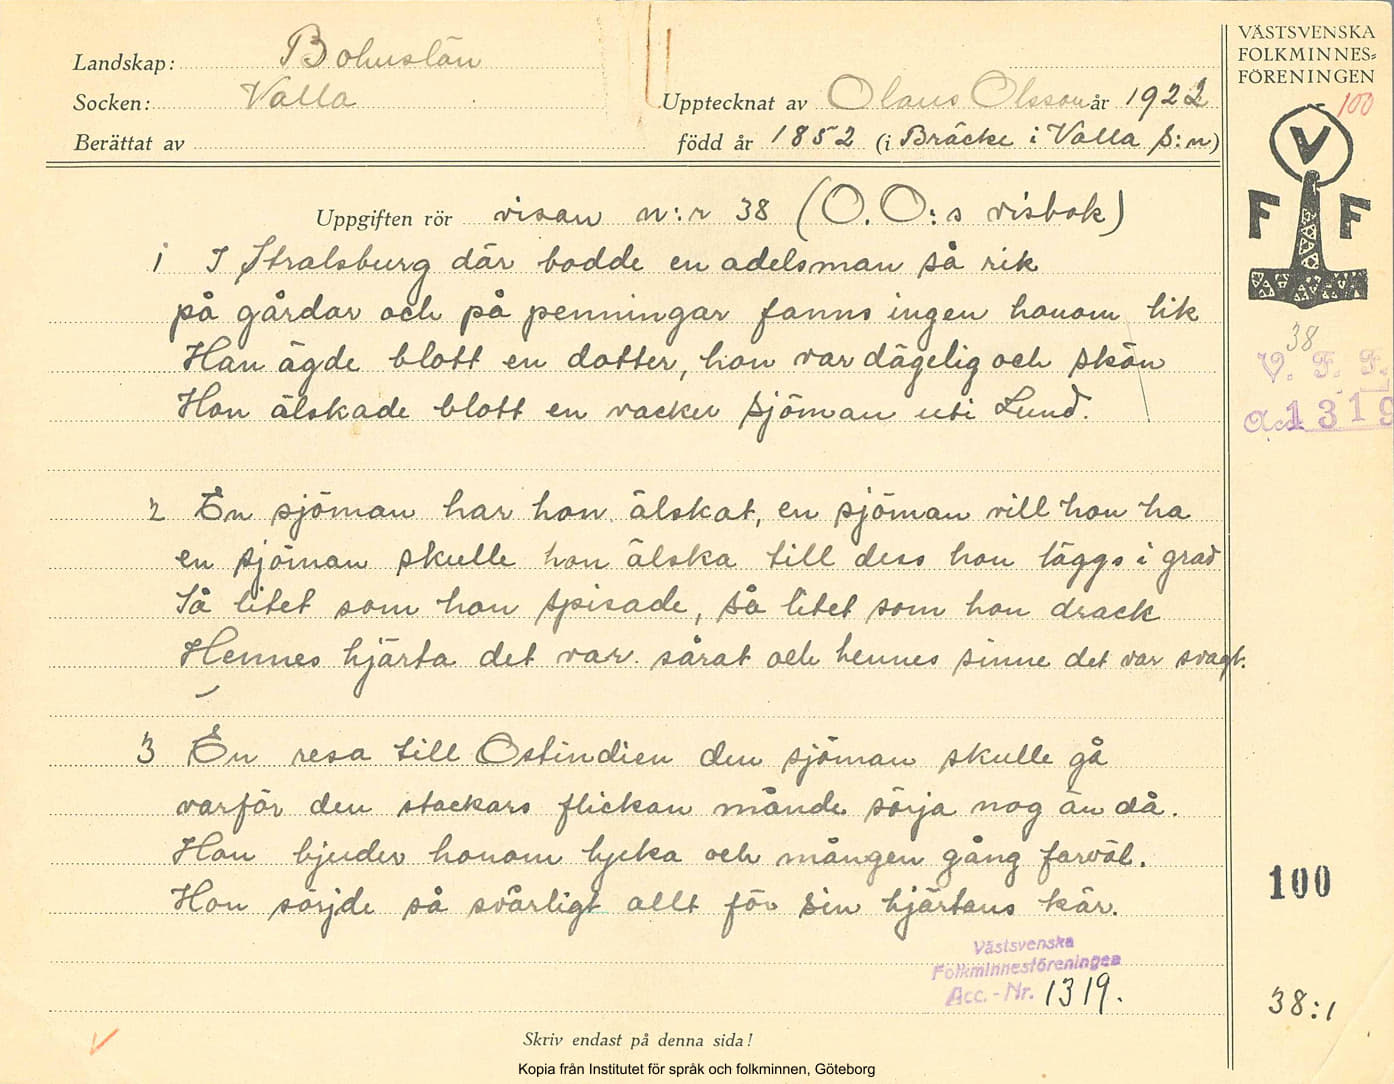 Landskap: Bohuslän
Socken: Valla
Berättat av
Upptecknat av Olaus Olsson år 1922
född år 1852 (i Bräcke i Valla S:n)
VÄSTSVENSKA
FOLKMINNES=
FÖRENINGEN
100
V
F F
38
V. F. F.
Acc. 1319
Uppgiften rör visan n:r 38 (O. O:s visbok)
1 I Stralsburg där bodde en adelsman så rik
på gårdar och på penningar fanns ingen honom lik
Han ägde blott en dotter, hon var dägelig och skön
Hon älskade blott en vacker sjöman uti Lund.
2 En sjöman har hon älskat, en sjöman vill hon ha
en sjöman skulle hon älska till dess hon läggs i grav
Så litet som hon spisade, så litet som hon drack
Hennes hjärta det var sårat och hennes sinne det var svagt.
3 En resa till Ostindien den sjöman skulle gå
varför den stackars flickan månde sörja nog än då.
Hon bjuder honom lycka och mången gång farväl.
Hon sörjde så svårligt allt för sin hjärtans kär.
100
Västsvenska
Folkminnesföreningen
Acc.-Nr. 1319.
38:1
Skriv endast på denna sida!
Kopia från Institutet för språk och folkminnen, Göteborg